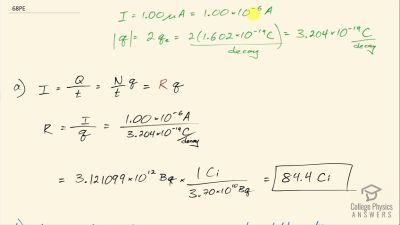 68PE
I = 1.00 μA = 1.00×10⁻⁶ A
|q| = 2 qₑ = 2(1.602×10⁻¹⁹ C)/decay = 3.204×10⁻¹⁹ C/decay
a) I = Q/t = N/t q = R q
R = I/q = 1.00×10⁻⁶ A / 3.204×10⁻¹⁹ C/decay
= 3.121099×10¹² Bq × 1 Ci / 3.70×10¹⁰ Bq = 84.4 Ci
College Physics
ANSWERS